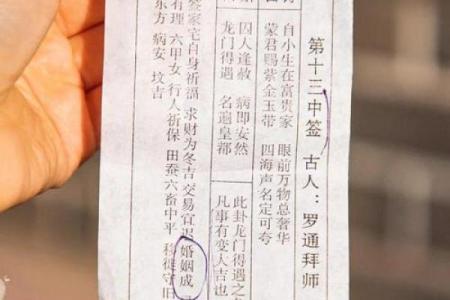 第十三中签 古人：罗通拜师
自小生在富贵家 眼前万物总奢华
蒙君赐紫金玉带 四海声名定可夸
囚人逢赦 病即安然
龙门得遇 名遍皇都
此卦龙门得遇之
凡事有变人吉也
家宅自身祈福 求财为冬吉 交易宜迟 婚姻成
有理 六甲女 行人祈保 田蚕六畜中平 移徙守旧
东方 病安 坟吉